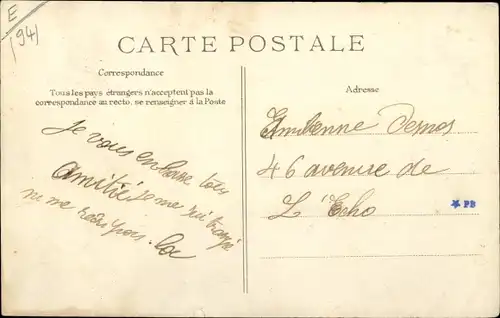 E
(94)
CARTE POSTALE
Correspondance
Tous les pays étrangers n'acceptent pas la
correspondance au recto, se renseigner à la Poste
Je vous embrasse tous
Amitié je me suis trompé
ne me
Adresse
46 avenue de
L'Echo
PB